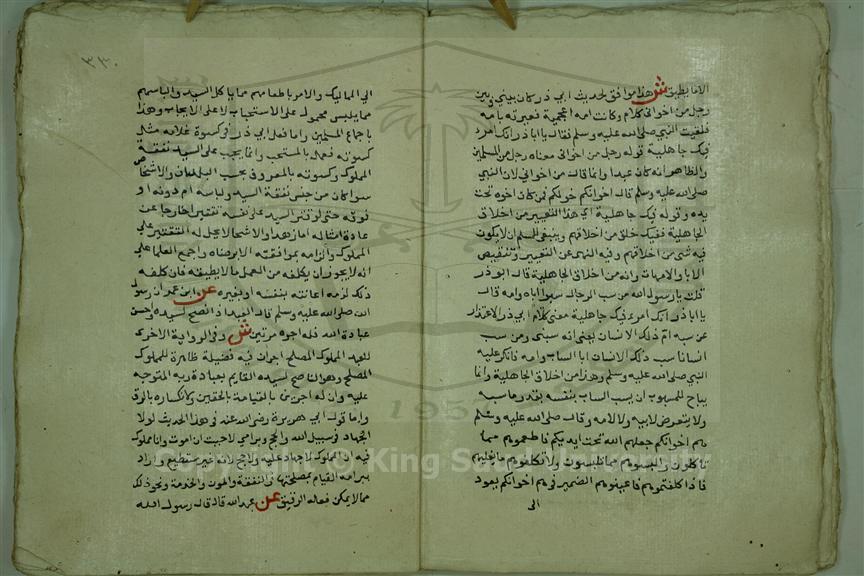 الا ما يطيق ش هذا موافق لحديث ابي ذر كان بيني وبين
رجل من اخواني كلام وكانت امه اعجمية فعيرته بامه
فلقيت النبي صلى الله عليه وسلم فقال يا اباذر انك امرء
فيك جاهلية قوله رجل من اخواني معناه رجل من المسلمين
والظاهر انه كان عبدا وانما قال من اخواني لان النبي
صلى الله عليه وسلم قال اخوانكم خولكم فمن كان اخوه تحت
يده وقوله فيك جاهلية اي هذا التعيير من اخلاق
الجاهلية ففيك خلق من اخلاقهم وينبغي للمسلم ان لا يكون
فيه شي من اخلاقهم وفيه النهي عن التعيير وتنقيص
الابا والامهات وانه من اخلاق الجاهلية قال ابو ذر
قلت يا رسول الله من سب الرجال سبوا اباه وامه قال
يا اباذر انك امرء فيك جاهلية معنى كلام ابي ذر الاعتذار
عن سبه ام ذلك الانسان يعني انه سبني ومن سب
انسانا سب ذلك الانسان ابا الساب وامه فانكر عليه
النبي صلى الله عليه وسلم وهذا من اخلاق الجاهلية وانما
يباح للمسبوب ان يسب الساب بنفسه بقدر ما سبه
ولا يتعرض لابيه ولا لامه وقال صلى الله عليه وسلم
هم اخوانكم جعلهم الله تحت ايديكم فاطعموهم مما
تاكلون والبسوهم مما تلبسون ولا تكلفوهم ما يغلبهم
فاذا كلفتموهم فاعينوهم الضمير في هم اخوانكم يعود
الى
٣٣٠
الى المماليك والامر باطعامهم مما ياكل السيد والباسهم
مما يلبس محمول على الاستحباب لا على الايجاب وهذا
باجماع المسلمين واما فعل ابي ذر في كسوة غلامه مثل
كسوته فعمل بالمستحب وانما يجب على السيد نفقة
المملوك وكسوته بالمعروف بحسب البلدان والاشخاص
سوا كان من جنس نفقة السيد ولباسه ام دونه او
فوقه حتى لو قتر السيد على نفسه تقتيرا خارجا عن
عادة امثاله اما زهدا والا شحا لا يحل له التقتير على
المملوك والزامه بموافقته الا برضاه واجمع العلما على
انه لا يجوز ان يكلفه من العمل ما لا يطيقه فان كلفه
ذلك لزمه اعانته بنفسه او بغيره عن ابن عمر ان رسول
الله صلى الله عليه وسلم قال العبد اذا نصح لسيده واحسن
عبادة الله فله اجره مرتين ش وفي الرواية الاخرى
للعبد المملوك المصلح اجران فيه فضيلة ظاهرة للمملوك
المصلح وهو الناصح لسيده القايم بعبادة ربه المتوجه
عليه وان له اجرين بالقيامة بالحقين ولانكساره بالرق
واما قول ابي هريرة رضي الله عنه في هذا الحديث لولا
الجهاد في سبيل الله والحج وبر امي لاحببت ان اموت وانا مملوك
فيه ان المملوك لا جهاد عليه ولا حج لانه غير مستطيع واراد
ببر امه القيام بمصلحتها والنفقة والموت والخدمة ونحو ذلك
مما لا يمكن فعاله الرقيق عن عبد الله قال قال رسول الله
Copyright © King Saud University
195